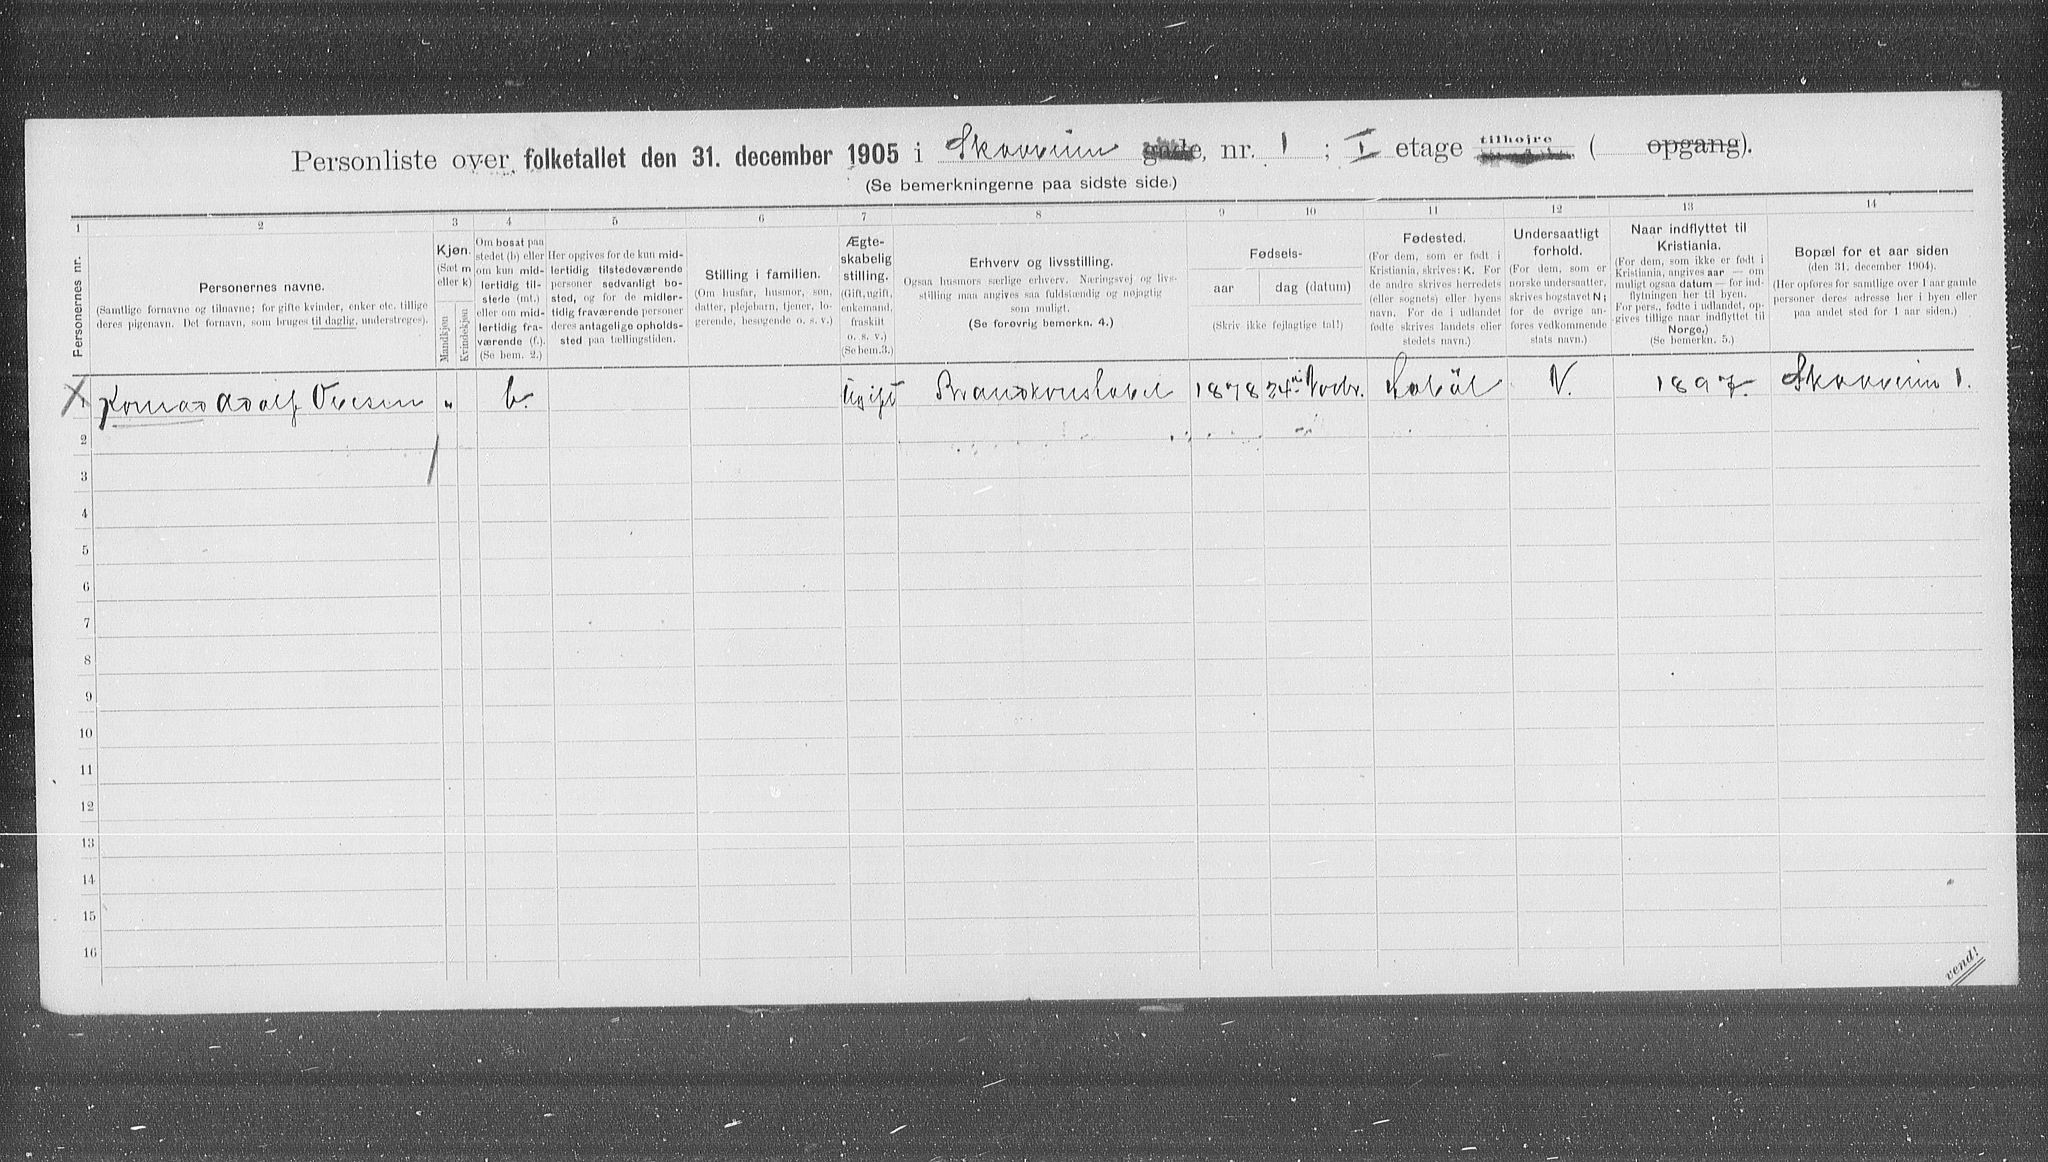 Personliste over folketallet den 31. december 1905 i Skovveien gade, nr. 1 ; I etage tilhøjre ( opgang).
(Se bemerkningerne paa sidste side.)
1 2 3 4 5 6 7 8 9 10 11 12 13 14
Personernes nr.
Personernes navne.
(Samtlige fornavne og tilnavne; for gifte kvinder, enker etc. tillige
deres pigenavn. Det fornavn, som bruges til daglig, understreges).
Kjøn.
(Sæt m
eller k)
Mandkjøn
Kvindekjøn
Om bosat paa
stedet (b) eller
om kun mid-
lertidig til-
stede (mt.)
eller om mid-
lertidig fra-
værende (f.).
(Se bem. 2.)
Her opgives for de kun mid-
lertidig tilstedeværende
personer sedvanligt bo-
sted, og for de midler-
tidig fraværende personer
deres antagelige opholds-
sted paa tællingstiden.
Stilling i familien.
(Om husfar, husmor, søn,
datter, plejebarn, tjener, lo-
gerende, besøgende o. s. v.)
Ægte-
skabelig
stilling.
(Gift, ugift,
enkemand,
fraskilt
o. s. v.)
(Se bem.3.)
Erhverv og livsstilling.
Ogsaa husmors særlige erhverv. Næringsvej og livs-
stilling maa angives saa fuldstændig og nøjagtig
som muligt.
(Se forøvrig bemerkn. 4.)
Fødsels-
aar
dag (datum)
(Skriv ikke fejlagtige tal!)
Fødested.
(For dem, som er født i
Kristiania, skrives: K. For
de andre skrives herredets
(eller sognets) eller byens
navn. For de i udlandet
fødte skrives landets eller
stedets navn.)
Undersaatligt
forhold.
(For dem, som er
norske undersaatter,
skrives bogstavet N;
for de øvrige an-
føres vedkommende
stats navn.)
Naar indflyttet til
Kristiania.
(For dem, som ikke er født i
Kristiania, angives aar — om
muligt ogsaa datum — for ind-
flytningen her til byen.
For pers., fødte i udlandet, op-
gives tillige naar indflyttet til
Norge.)
(Se bemerkn. 5.)
Bopæl for et aar siden
(den 31. december 1904).
(Her opføres for samtlige over 1 aar gamle
personer deres adresse her i byen eller
paa andet sted for 1 aar siden.)
1 Konrad Adolf Olesen " b. Ugift Brandkonstabel 1878 24 Novbr. N. 1897. Skovveien 1.
2
3
4
5
6
7
8
9
10
11
12
13
14
15
16
vend!